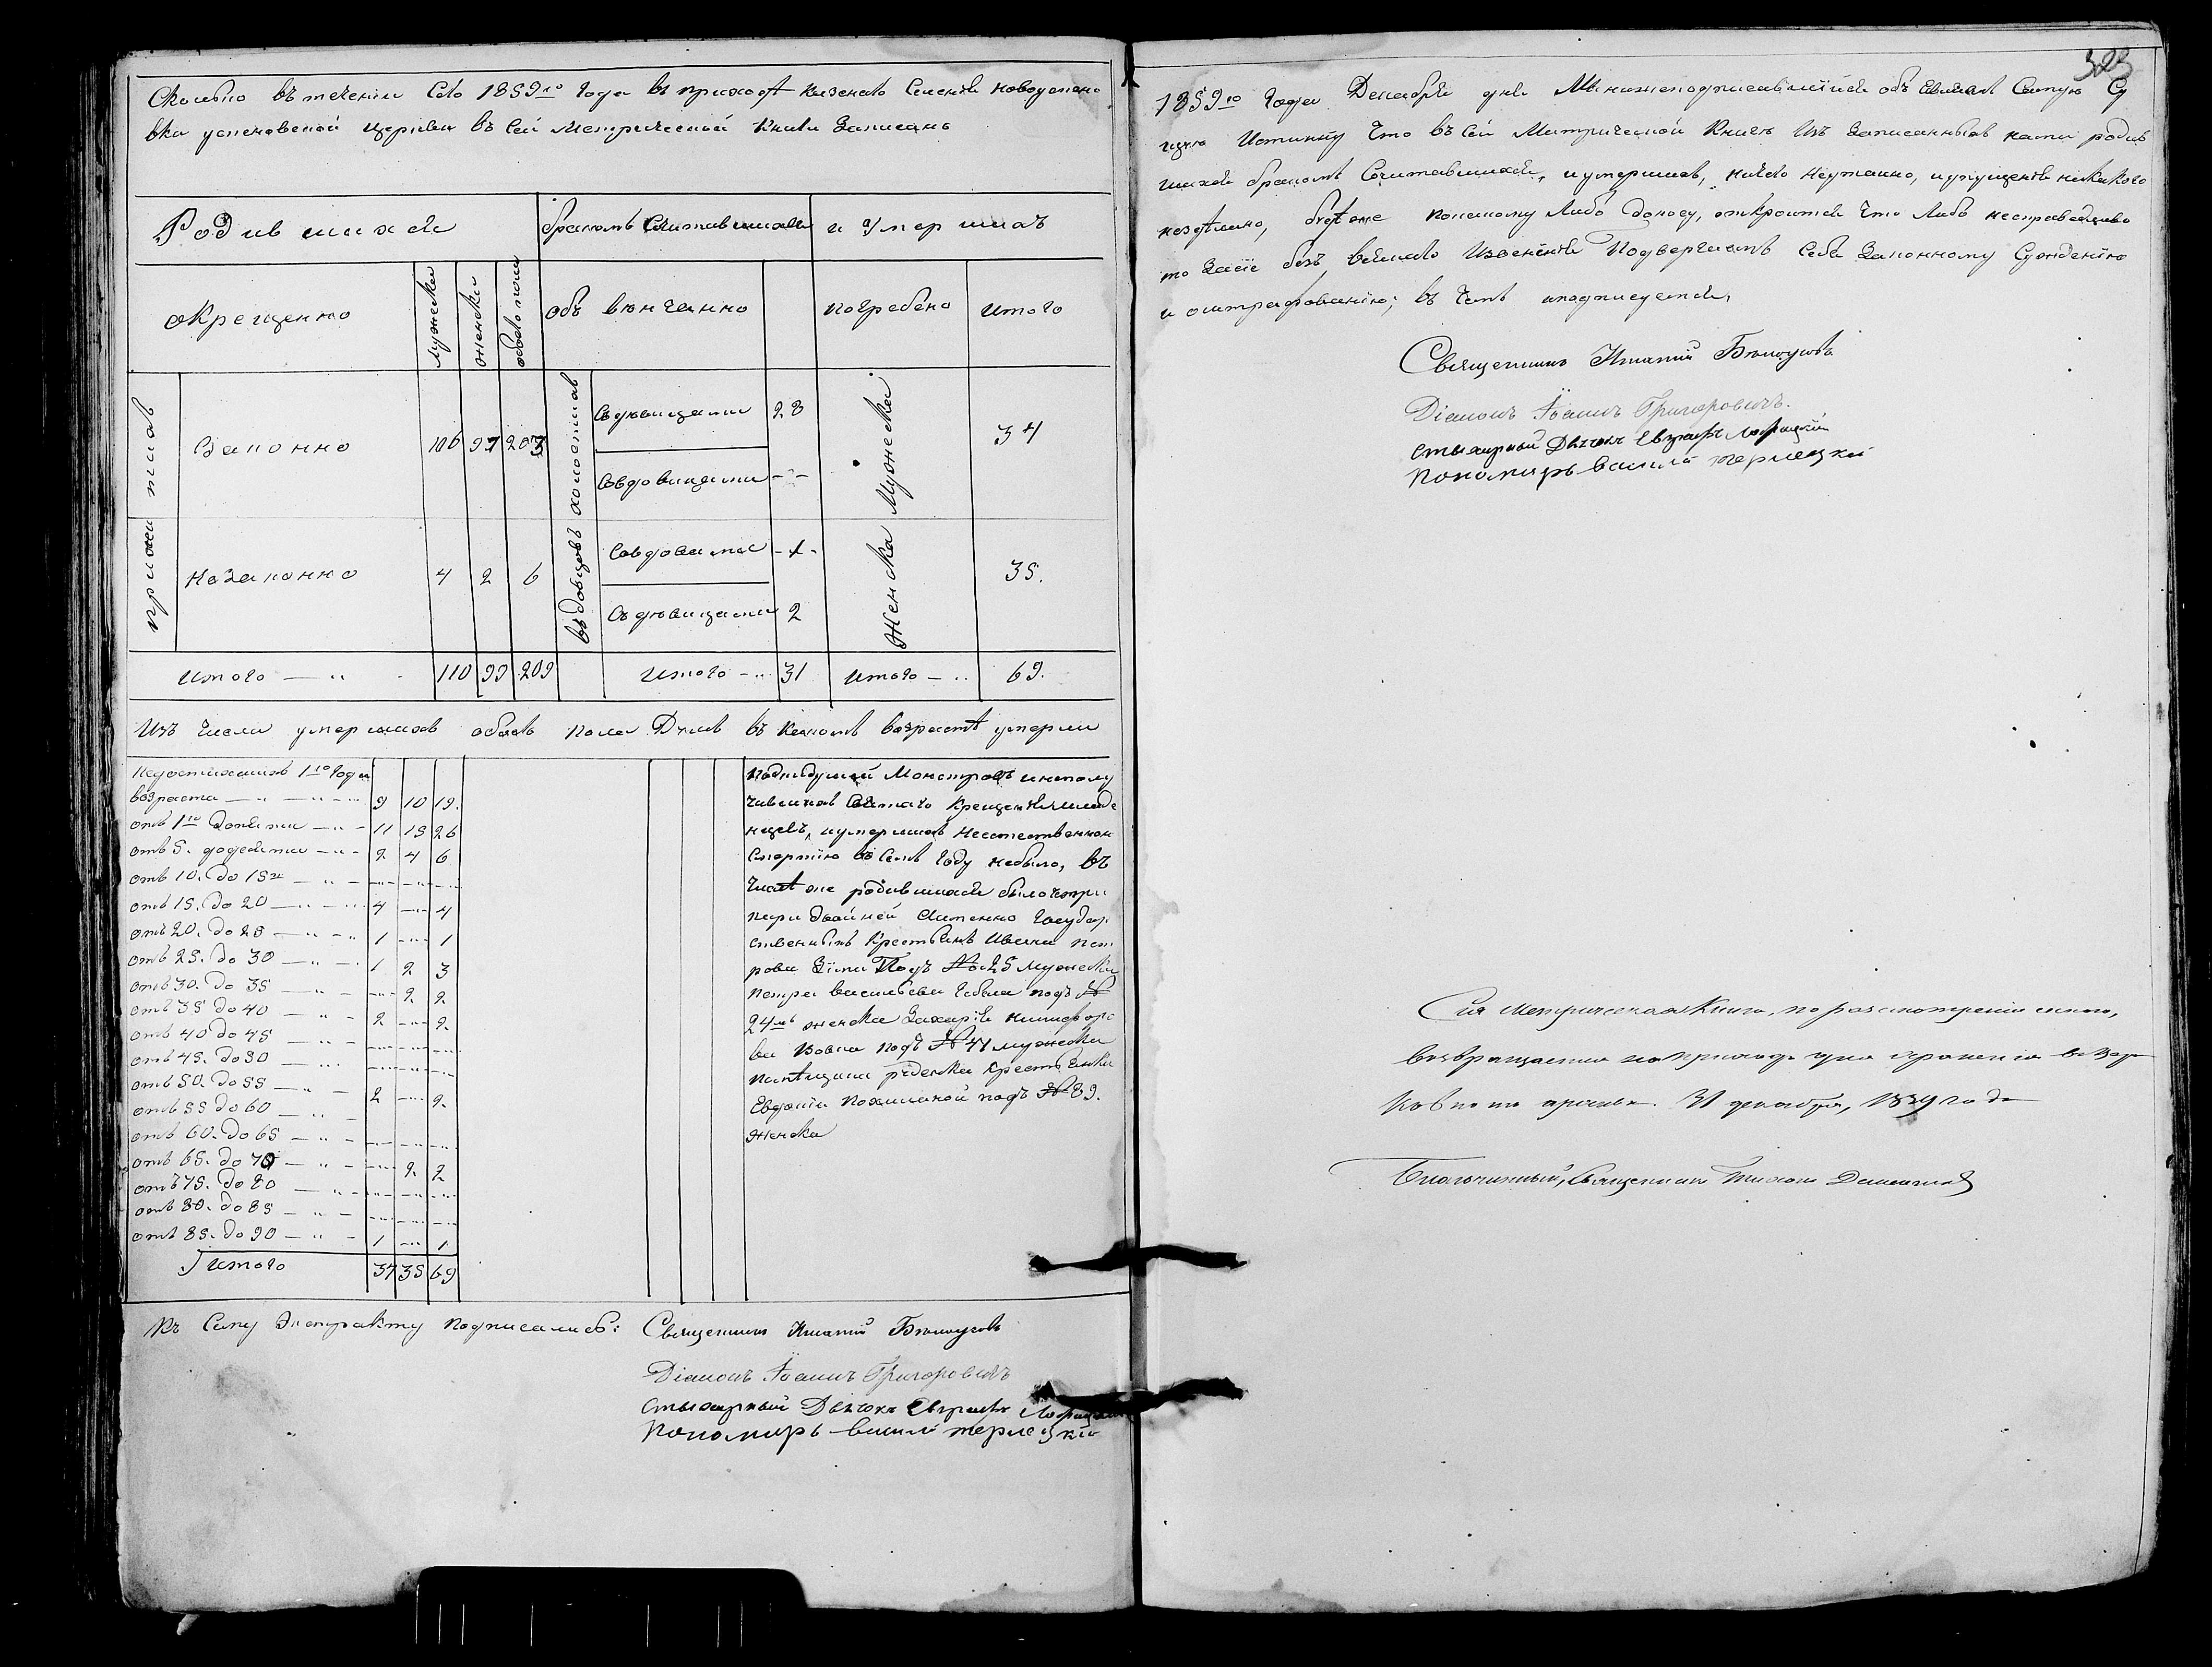 Сколько въ теченіи сего 1859го года въ приходѣ казенаго Селенія Новоуспено
вки успеновской церкви въ сей метрической книги записано
Родившихся
бракомъ Сочитавшихся
и умершихъ
окрещенно
мужеска
женска
обоего пола
объ вѣнчанно
погребено
итого
Законно
106 97 203
холостихъ
Содѣвицами 28
Мужеска
34
Совдовицами
Незаконно
4 2 6
въдовцовъ
Совдовами 1
Женска
35.
Съ дѣвицами 2
итого 110 99 209
итого 31
итого 69.
Изъ числа умершихъ обоихъ пола Душъ въ какомъ возрастѣ умерли
Недостигшихъ 1го года
возраста 9 10 19.
отъ 1го допяти 11 15 26
отъ 5. додесяти 2 4 6
отъ 10. до 15
отъ 15. до 20 4 4
отъ 20. до 25 1 1
отъ 25. до 30 1 2 3
отъ 30. до 35 2 2
отъ 35 до 40 2 2
отъ 40 до 45
отъ 45. до 50
отъ 50. до 55 2 2
отъ 55 до 60
отъ 60. до 65
отъ 65. до 70 2 2
отъ 75. до 80
отъ 80. до 85
отъ 85. до 90 1 1
итого 34 35 69
Монстровъ инополу
чившихъ Святаго Крещенія младе
нцевъ, иумершихъ неестественною
Смертію въ семъ году небыло, въ
числѣ же родившихся было четри
пари двойней Именно Государ
ственныхъ Крестьянъ Ивана пет
рова Зіми Подъ № 25 мужеска
Петра Васильева подъ №
24мъ женска Захарія никифоро
ва Вовка подъ № 41 мужеска
Крестьянки
Евдокіи подъ № 89.
женска
Къ Сему Экстракту Подписались: Священникъ Игнатій Бѣлоусовъ
Діаконъ Іоаннъ Григоровичъ
стыхарный Дьячокъ Евграфъ
Пономарь василій терлецкій
323
1859го года Декабря дня Мыниженодписавшийся объ Являемъ Самую Су
щую Истинну что въ Сей Митрической Книгѣ Изъ Записанныхъ нами родив
шихся бракомъ Сочитавшихся, иумершихъ, ничего неутаино, иупущенія никакого
незделано, будѣ же покакому Либо доносу, откроится что Либо несправедливо
то Засіе безъ всякаго Извененія Подвергаемъ Себя Законному Сужденію
и оштрафованію; въ чемъ иподписуемся,
Священникъ Игнатій Бѣлоусовъ
Діаконъ Іоаннъ Григоровичъ.
стыхарный Дьячокъ Евграфъ
Пономарь василій терлецкій
Сія Метрическая Книга, по разсмотреніи мною,
возвращается на приходъ для храненія въ Цер
ковномъ архивѣ. 31 декабря, 1859 года
Благочинный, Священникъ